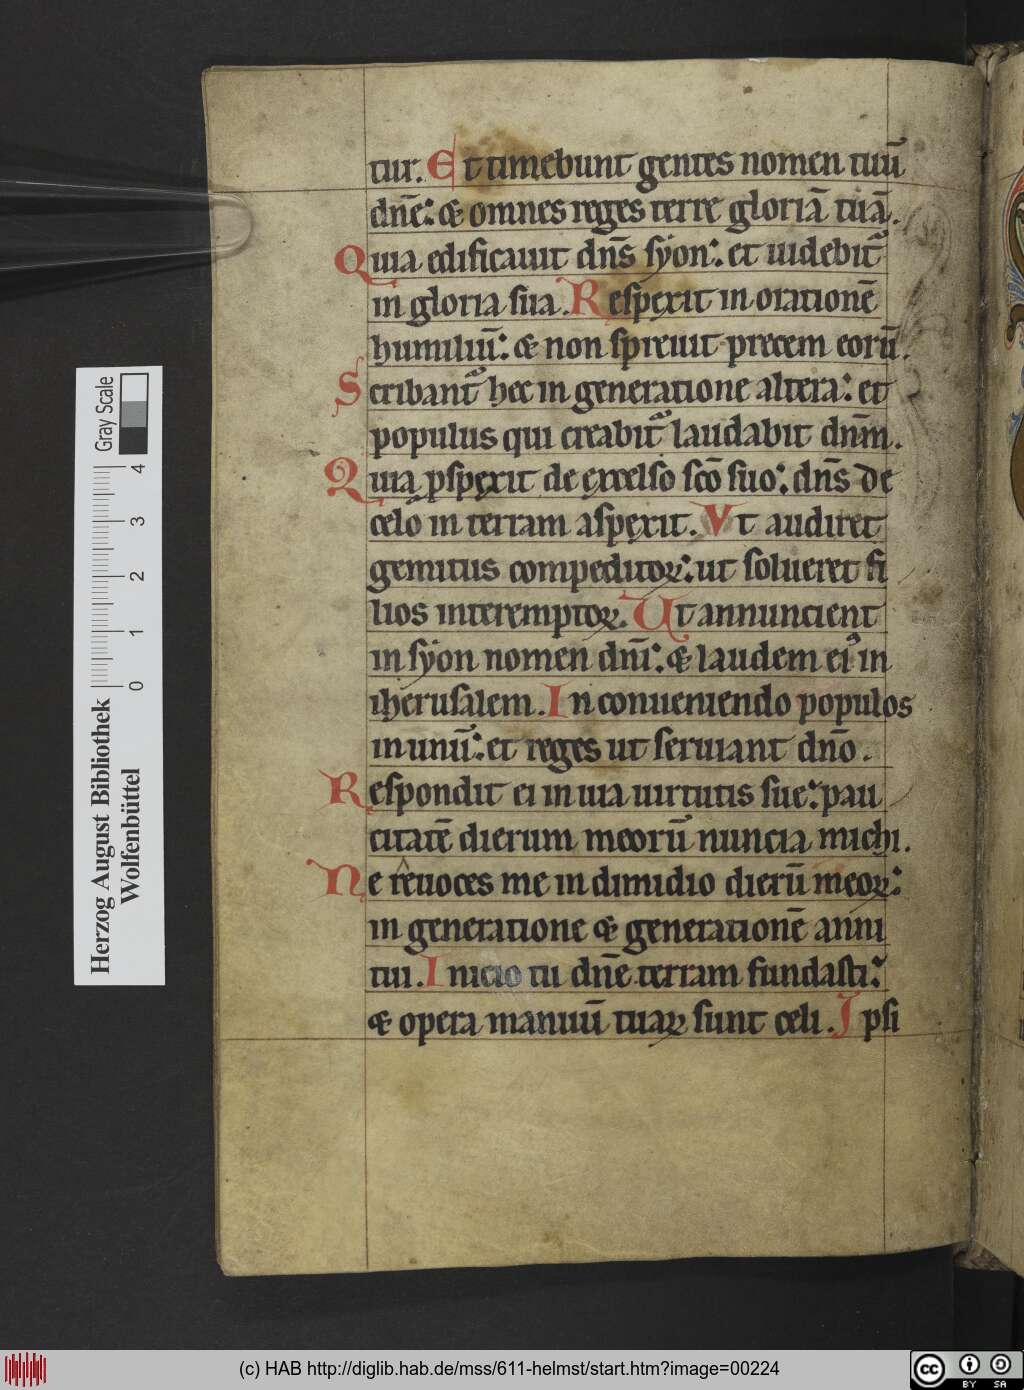 tur. Et timebunt gentes nomen tuū
dnē: & omnes reges terre gloriā tuā.
Quia edificauit dn̄s syon: et uidebit᷑
in gloria sua. Respexit in orationē
humiliū: & non spreuit precem eorū.
Scribant᷑ hec in generatione altera: et
populus qui creabit᷑ laudabit dn̄m.
Quia ꝓspexit de excelso scō suo: dn̄s de
celo in terram aspexit. Vt audiret
gemitus compeditoꝝ: ut solueret fi
lios interemptoꝝ. Ut annuncient
in syon nomen dn̄i: & laudem ei᷒ in
iherusalem. In conueniendo populos
in unū: et reges ut seruiant dn̄o.
Respondit ei in uia uirtutis sue: pau
citatē dierum meorū nuncia michi.
Ne reuoces me in dimidio dierū meoꝝ:
in generatione & generationē anni
tui. Inicio tu dn̄e terram fundasti:
& opera manuū tuaꝝ sunt celi. Ipsi
Herzog August Bibliothek
Wolfenbüttel
0 1 2 3 4
Gray Scale
(c) HAB http://diglib.hab.de/mss/611-helmst/start.htm?image=00224
cc BY SA